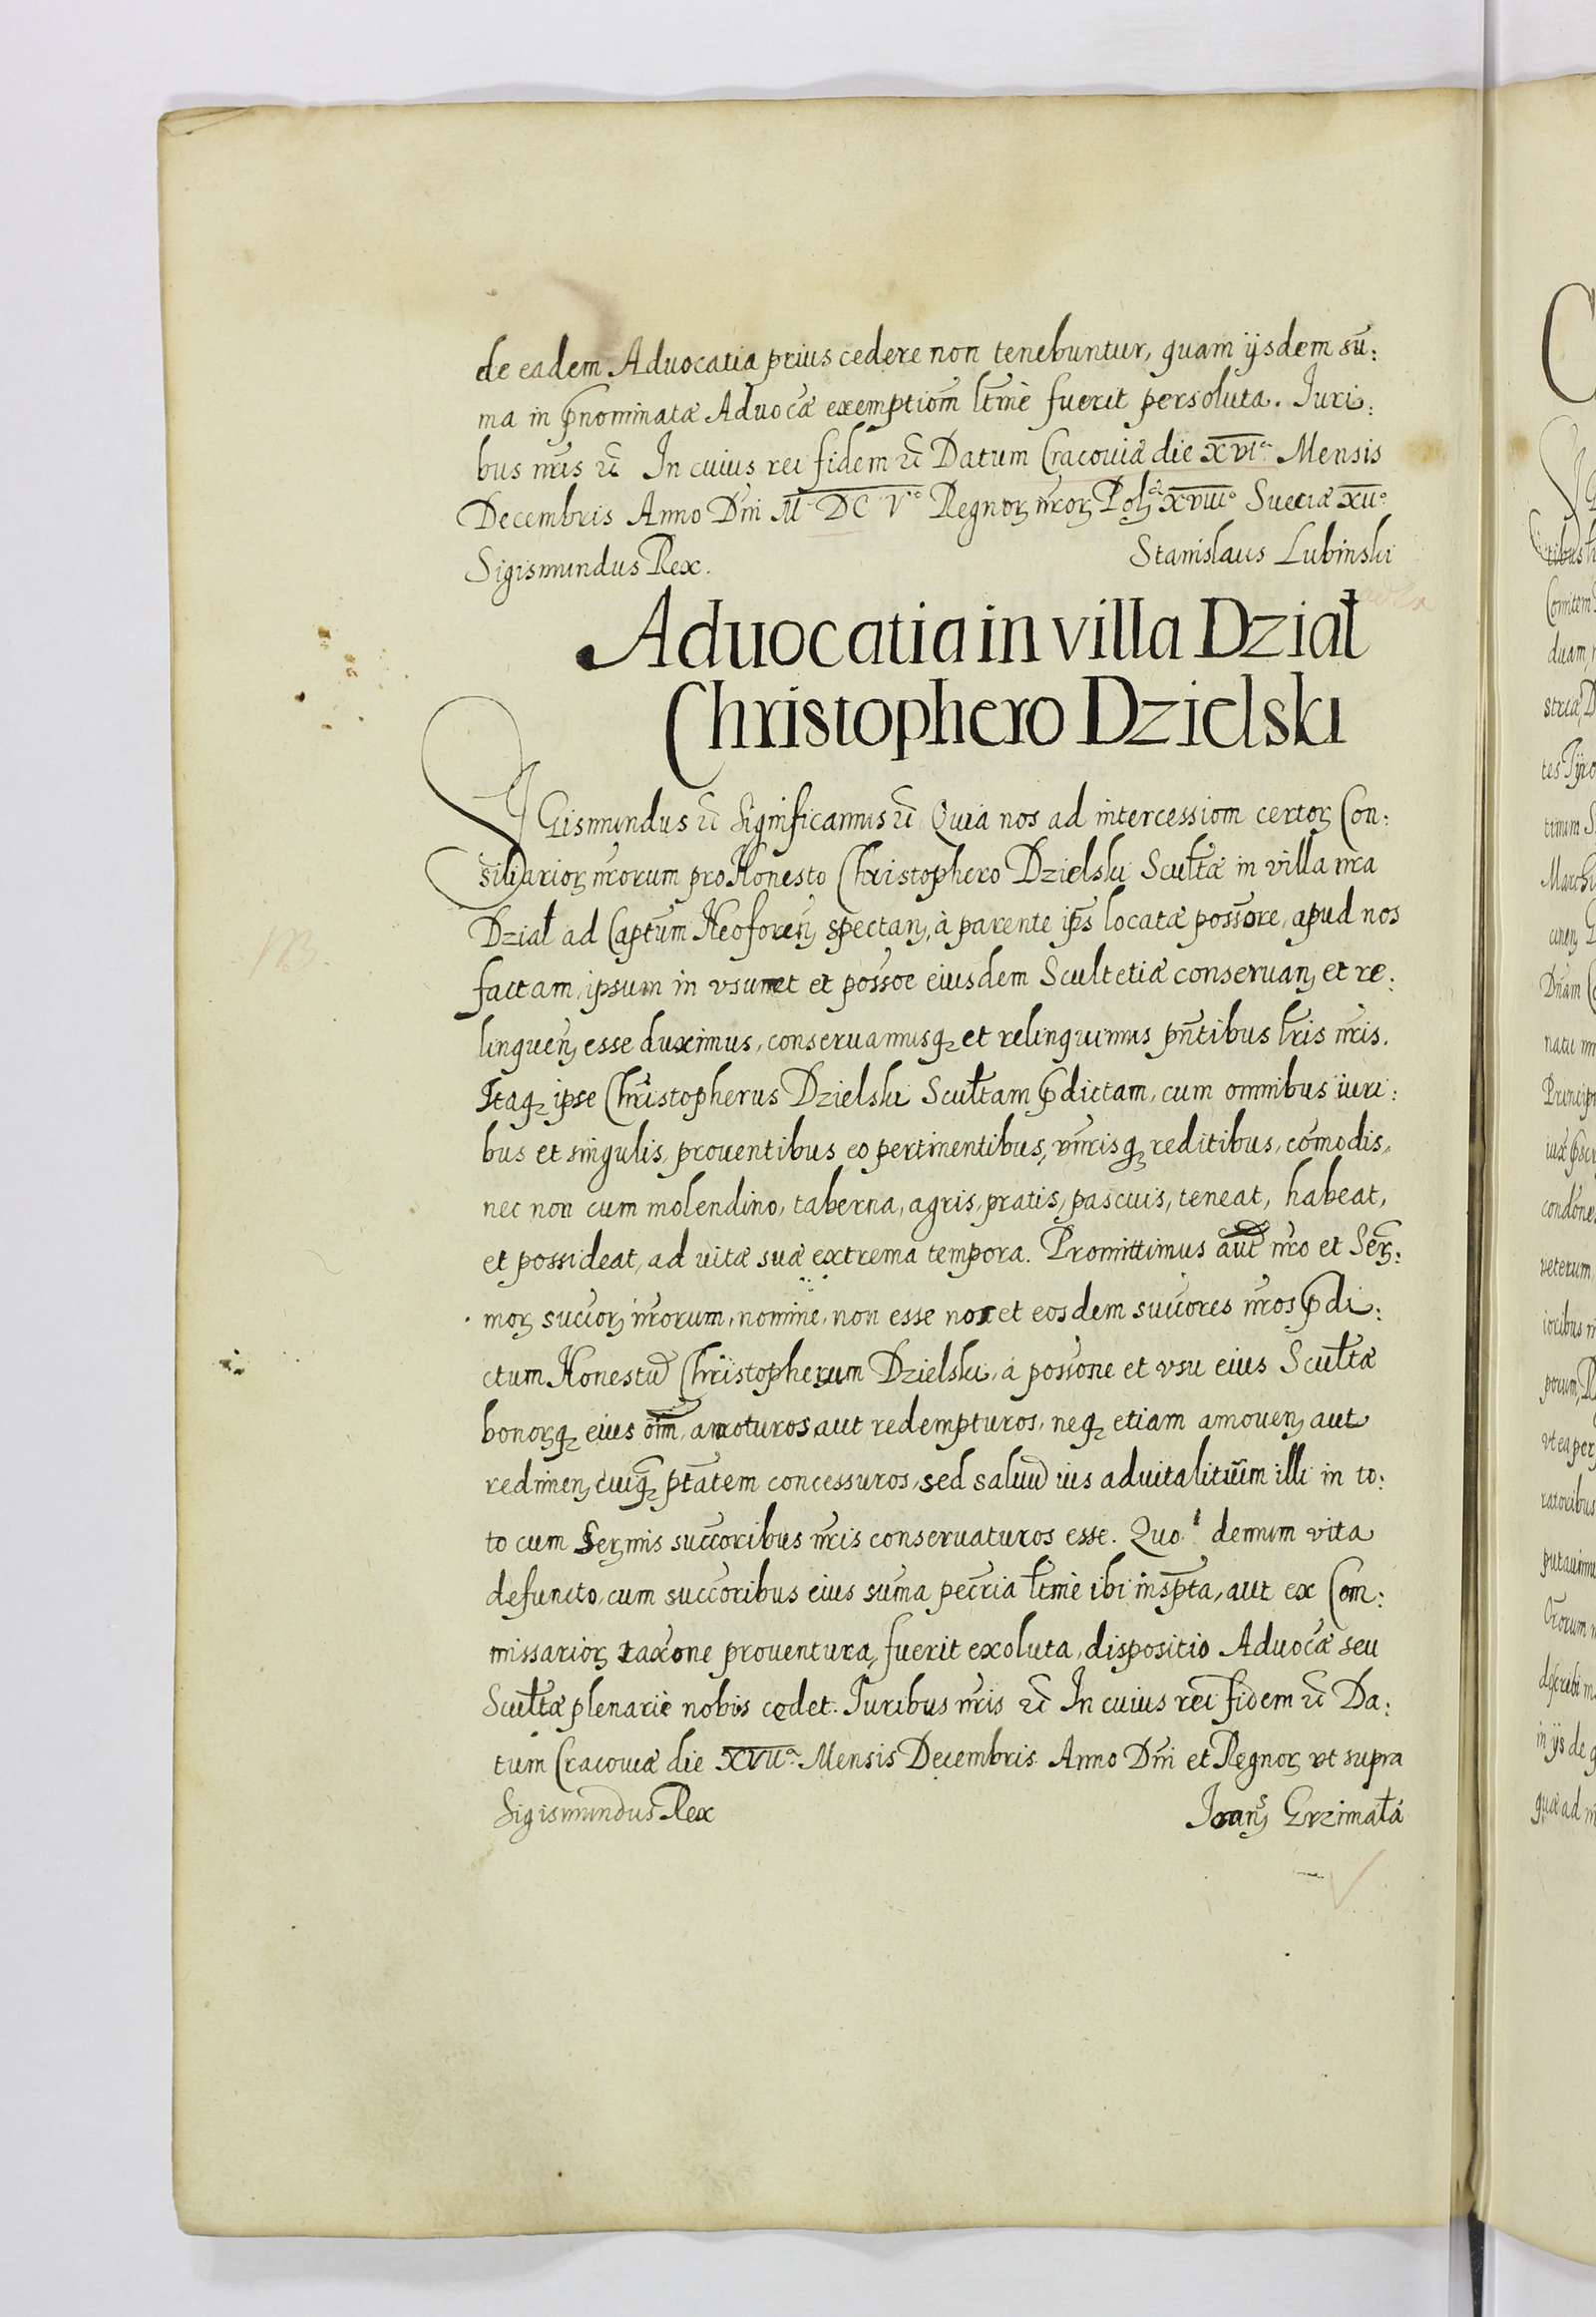 de eadem Aduocatia prius cedere non tenebuntur, quam ijsdem sũ:
ma in p̃nominatæ Aduocæ exemptiom̃ lt̃mè fuerit persoluta. Iuri:
bus nr̃is etc̃ In cuius rei fidem etc̃ Datum Cracouiæ die XVIa Mensis
Decembris Anno Dñi M DC Vo Regnorꝝ nr̃orꝝ Polꝝ XVIIIo Sueciæ XIIo
Sigismundus Rex. Stanislaus Lubinski
Aduocatia in villa Dział
Christophero Dzielski
SIGismundus etc̃ Significamus etc̃ Quia nos ad intercessiom̃ certorꝝ Con:
siliariorꝝ nr̃orum pro Honesto Christophero Dzielski Scultæ in villa nr̃a
Dział ad Captũm Neoforeñ spectañ, à parente ip̃s locatæ poss̃ore, apud nos
factam, ipsum in vsu et poss̃oe eiusdem Scultetiæ conseruañ et re:
linqueñ esse duximus, conseruamusqꝫ et relinquimus pñtibus lr̃is nr̃is.
Itaqꝫ ipse Christopherus Dzielski Scultam p̃dictam, cum omnibus iuri:
bus et singulis prouentibus eo pertinentibus, vniũrisqꝫ reditibus, com̃odis,
nec non cum molendino, taberna, agris, pratis, pascuis, teneat, habeat,
et possideat, ad vitæ suæ extrema tempora. Promittimus aut̃ nr̃o et Serꝝ:
morꝝ succorꝝ nr̃orum, nomine, non esse nos et eosdem succores nr̃os p̃di:
ctum Honestũ Christopherum Dzielski, à poss̃one et vsu eius Scultæ
bonorꝝqꝫ eius oĩm, amoturos aut redempturos, neqꝫ etiam amoueñ aut
redimeñ cuiqꝫ ptãtem concessuros, sed saluũ ius aduitalitium illi in to:
to cum Serꝝmis succoribus nr̃is conseruaturos esse. Quo demum vita
defuncto, cum succoribus eius sum̃a pecr̃ia lt̃mè ibi insp̃ta, aut ex Com:
missariorꝝ taxõne prouentura, fuerit exoluta, dispositio Aduocæ seu
Scultæ plenariè nobis cedet. Iuribus nr̃is etc̃ In cuius rei fidem etc̃ Da:
tum Cracouiæ die XVIIa Mensis Decembris Anno Dñi et Regnorꝝ vt supra
Sigismundus Rex Ioañs Grzimała